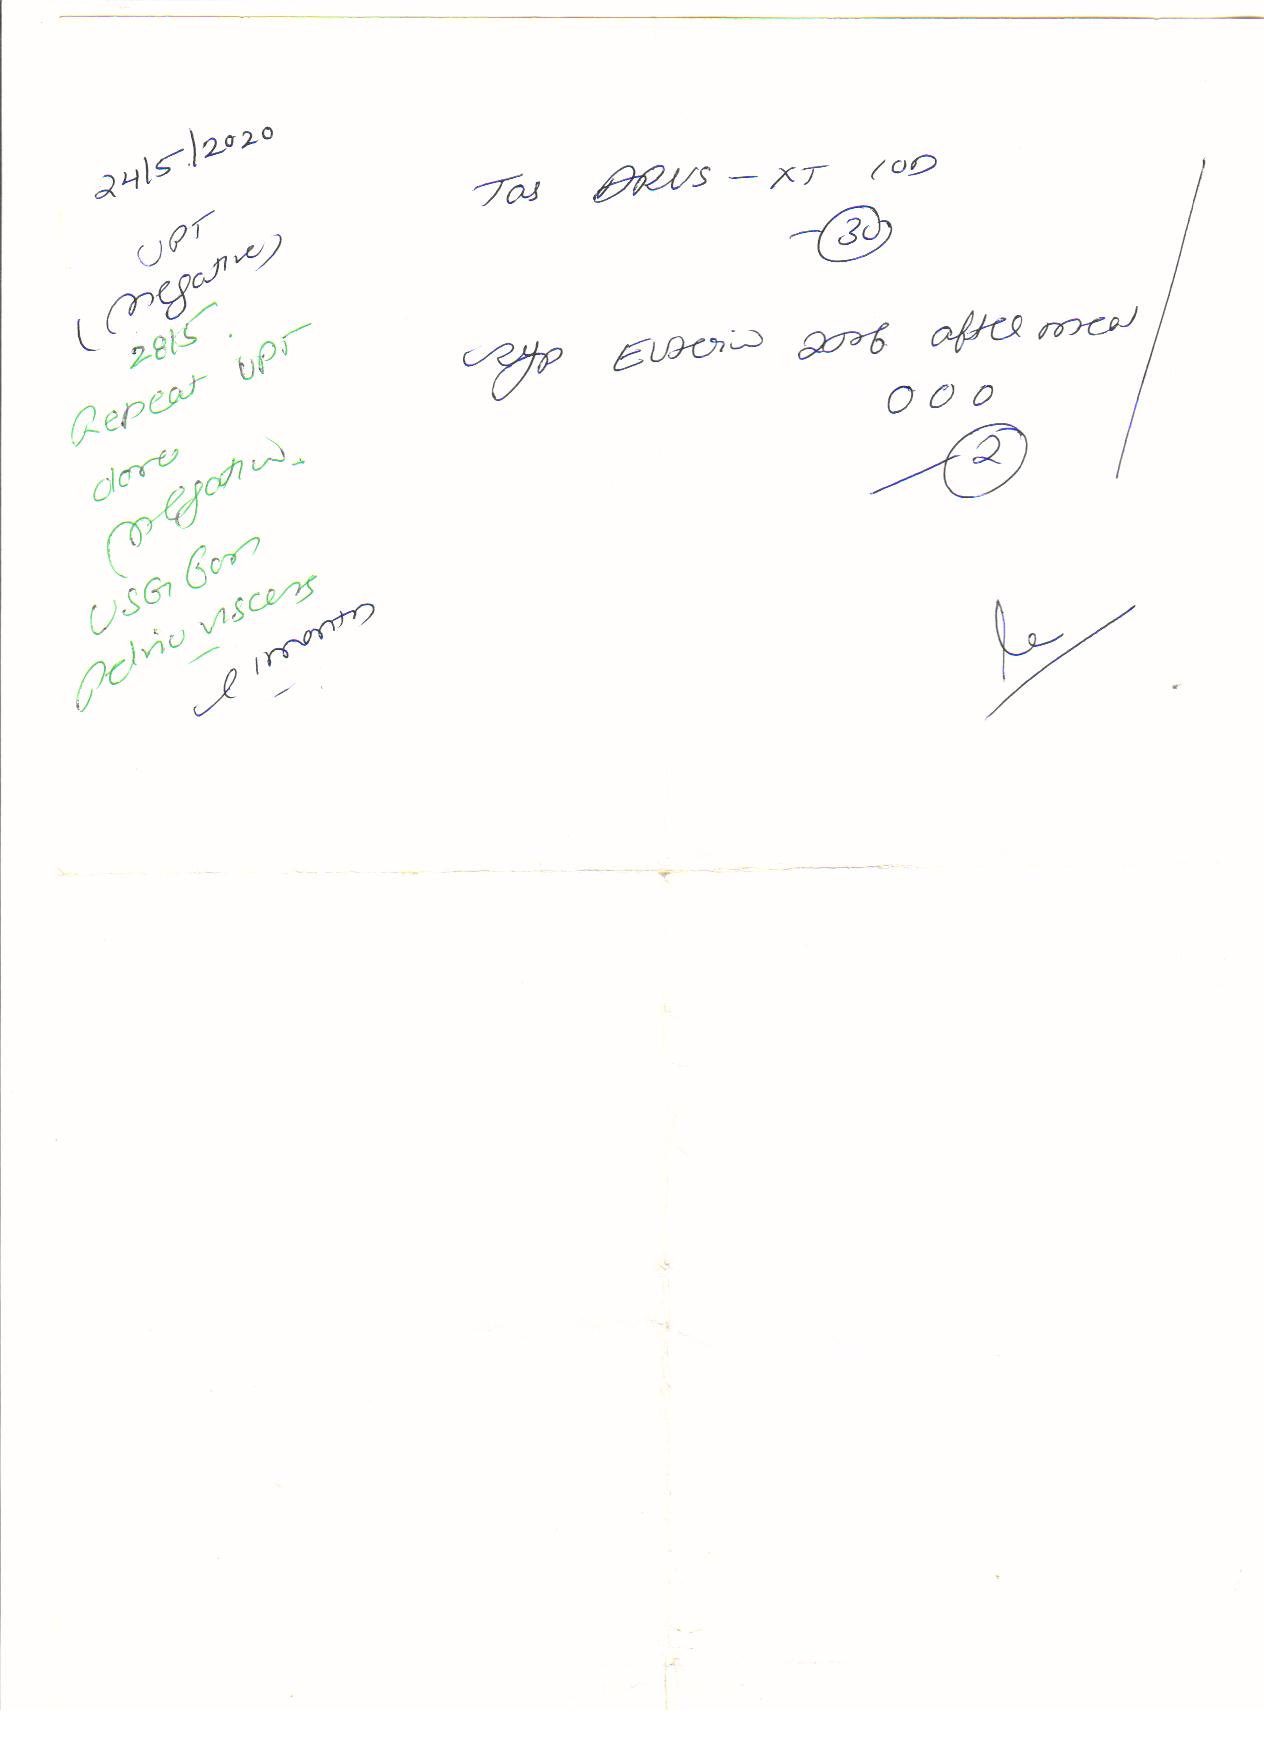 24/5/2020
UPT
(negative)
28/5.
Repeat UPT
done
(negative.
USG for
pelvic viscera
1 month
Tab ARVS - XT 1OD
30
Syp after meal
0 0 0
2